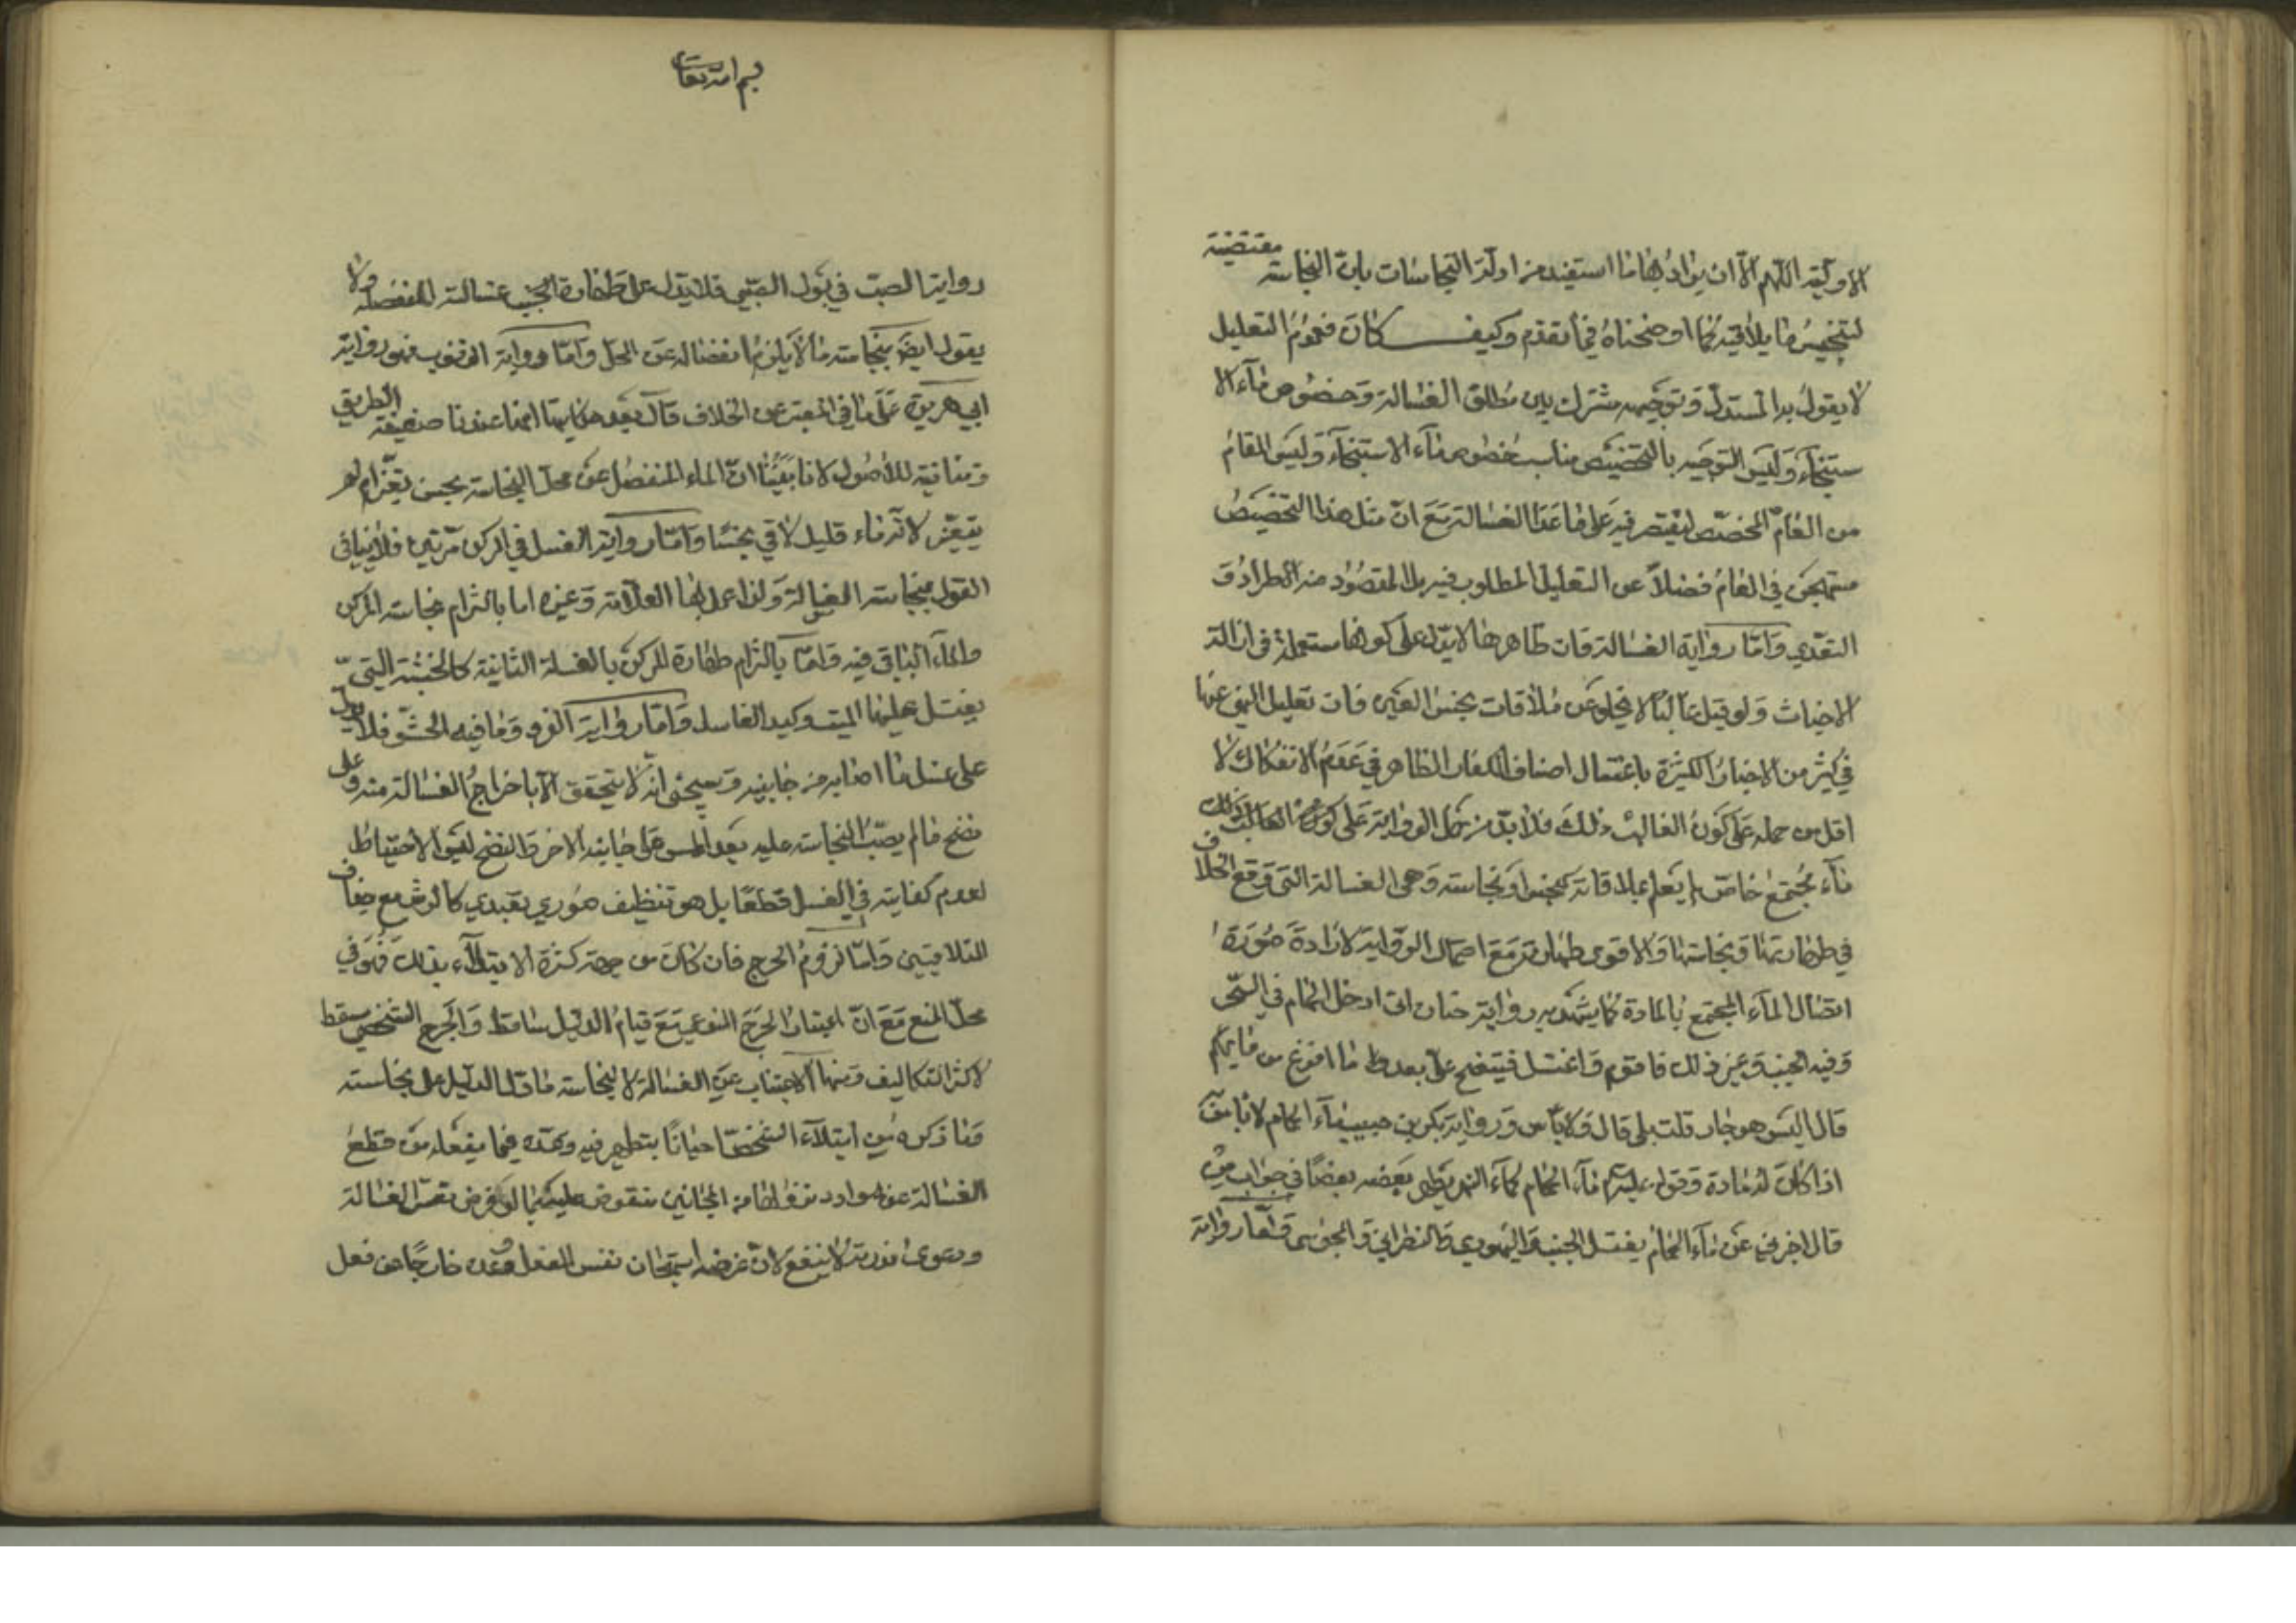 الاولوية اللهم الا ان يراد بها ما استفيد من ادلة النجاسات بان النجاسة مقتضية
لتنجيس ما يلاقيه كما اوضحناه فيما تقدم وكيف كان فعموم التعليل
لا يقول به المستدل وتوجيهه مشترك بين مطلق الغسالة وخصوص ماء الا
ستنجاء وليس التوجيه بالتخصيص مناسب خصوص ماء الاستنجاء وليس المقام
من العام المخصص ليقتصر فيه على ما عدا الغسالة مع ان مثل هذا التخصيص
مستهجن في العام فضلا عن التعليل المطلوب فيه بل المقصود منه الاطراد و
التعدي واما رواية الغسالة فان ظاهرها لا يدل على كونها مستعملة في ازالة
الاخباث ولو قيل غالبا لا يخلو عن ملاقات نجس العين فان تعليل النهي عنها
في كثير من الاخبار الكثيرة باغتسال اصناف الكفار الظاهر في عدم الانفكاك لا
اقل من حمله على كون الغالب ذلك فلا بد من حمل الرواية على كون الغالب ذلك
ماء مجتمع خاص لم يعلم بملاقاته لنجس او نجاسته وهي الغسالة التي وقع الخلاف
في طهارتها ونجاستها والاقوى طهارته مع احتمال الرواية لارادة صورة
اتصال الماء المجتمع بالمادة كما يشهد به رواية حنان اني ادخل الحمام في السحر
وفيه الجنب وغير ذلك فاقوم واغتسل فينتضح علي بعد ما افرغ من مائهم
قال اليس هو جار قلت بلى قال ولا باس ورواية بكر بن حبيب ماء الحمام لا باس به
اذا كان له مادة وقوله عليه السلام ماء الحمام كماء النهر يطهر بعضه بعضا في جواب من
قال اخبرني عن ماء الحمام يغتسل الجنب واليهودي والنصراني والمجوسي واما رواية
بسم الله تعالى
رواية الصب في بول الصبي فلا يدل على طهارة غسالة المنفصلة ولا
يقول ايض بنجاسته ما لا يلزم انفصاله عن المحل واما رواية الذنوب فهو رواية
ابي هريرة على ما في المعتبر عن الخلاف قال بعد حكايتها انها عندنا ضعيفة الطريق
ومنافية للاصول لانا بينا ان الماء المنفصل عن محل النجاسة نجس تغير ام لم
يتغير لانه ماء قليل لاقى نجسا واما رواية الغسل في المركن مرتين فلا ينافي
القول بنجاسة الغسالة ولذا عمل بها العلامة وغيره اما بالتزام نجاسة المركن
والماء الباقي فيه واما بالتزام طهارة المركن بالغسلة الثانية كالخشبة التي
يغتسل عليها الميت وكيد الغاسل واما رواية الفرو وما فيه الحشو فلا يدل
على غسل ما اصابه من جانبيه وسيجئ انه لا يتحقق الا باخراج الغسالة منه وعلى
نضح ما لم يصبه النجاسة عليه بعد المس على جانبه الاخر والنضح ليس الاحتياط
لعدم كفايته في الغسل قطعا بل هو تنظيف صوري تعبدي كالرش مع جفاف
المتلاقيين واما لزوم الحرج فان كان من جهة كثرة الابتلاء بذلك فهو في
محل المنع مع ان اعتبار الحرج النوعي مع قيام الدليل ساقط والحرج الشخصي مسقط
لاكثر التكاليف ومنها الاجتناب عن الغسالة لا لنجاسة ما دل الدليل على نجاسته
وما ذكره من ابتلاء الشخص احيانا بتطهير فيه وتعديه فيما يفعله من قطع
الغسالة عنه موارد منقوض عليه بما لو فرض تغير الغسالة
ودعوى ندرته لا ينفع لان غرضه استهجان نفس الفعل وعده خارجا عن فعل